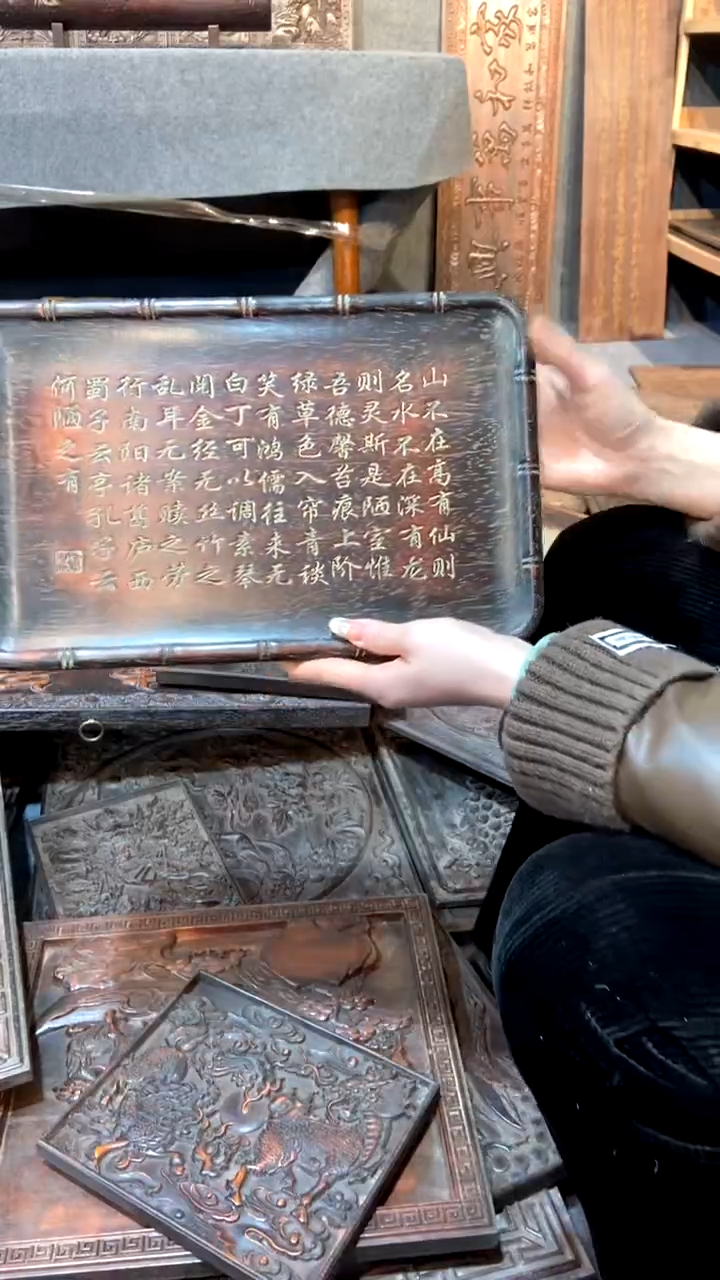 山不在高有仙则
名水不在深有龙
则灵斯是陋室惟
吾德馨苔痕上阶
绿草色入帘青谈
笑有鸿儒往来无
白丁可以调素琴
阅金经无丝竹之
乱耳无案牍之劳
行南阳诸葛庐西
蜀子云亭孔子云
何陋之有
家和萬事興